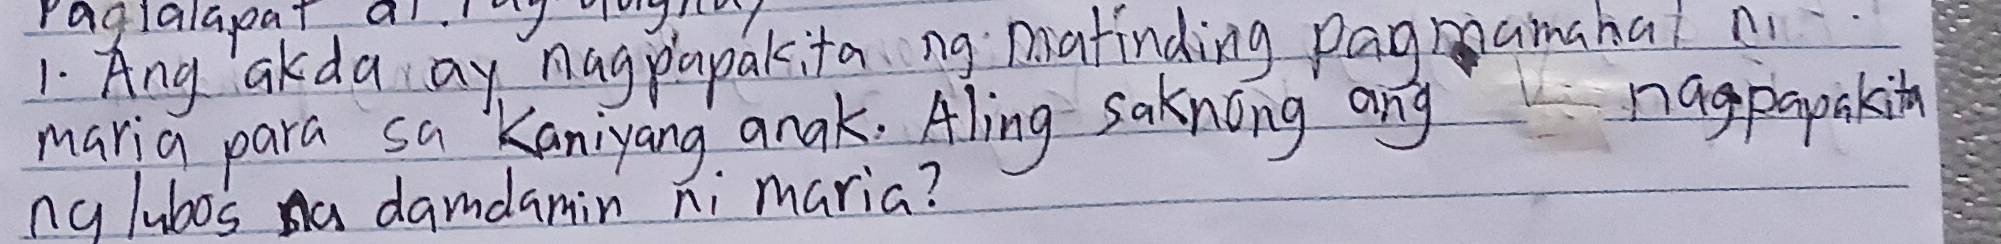 Paglalapat
1. Ang akda ay nagpapakita ng matinding pagmamahal ni
maria para sa Kaniyang anak. Aling saknong ang nagpapakita
ng lubos na damdamin ni maria?